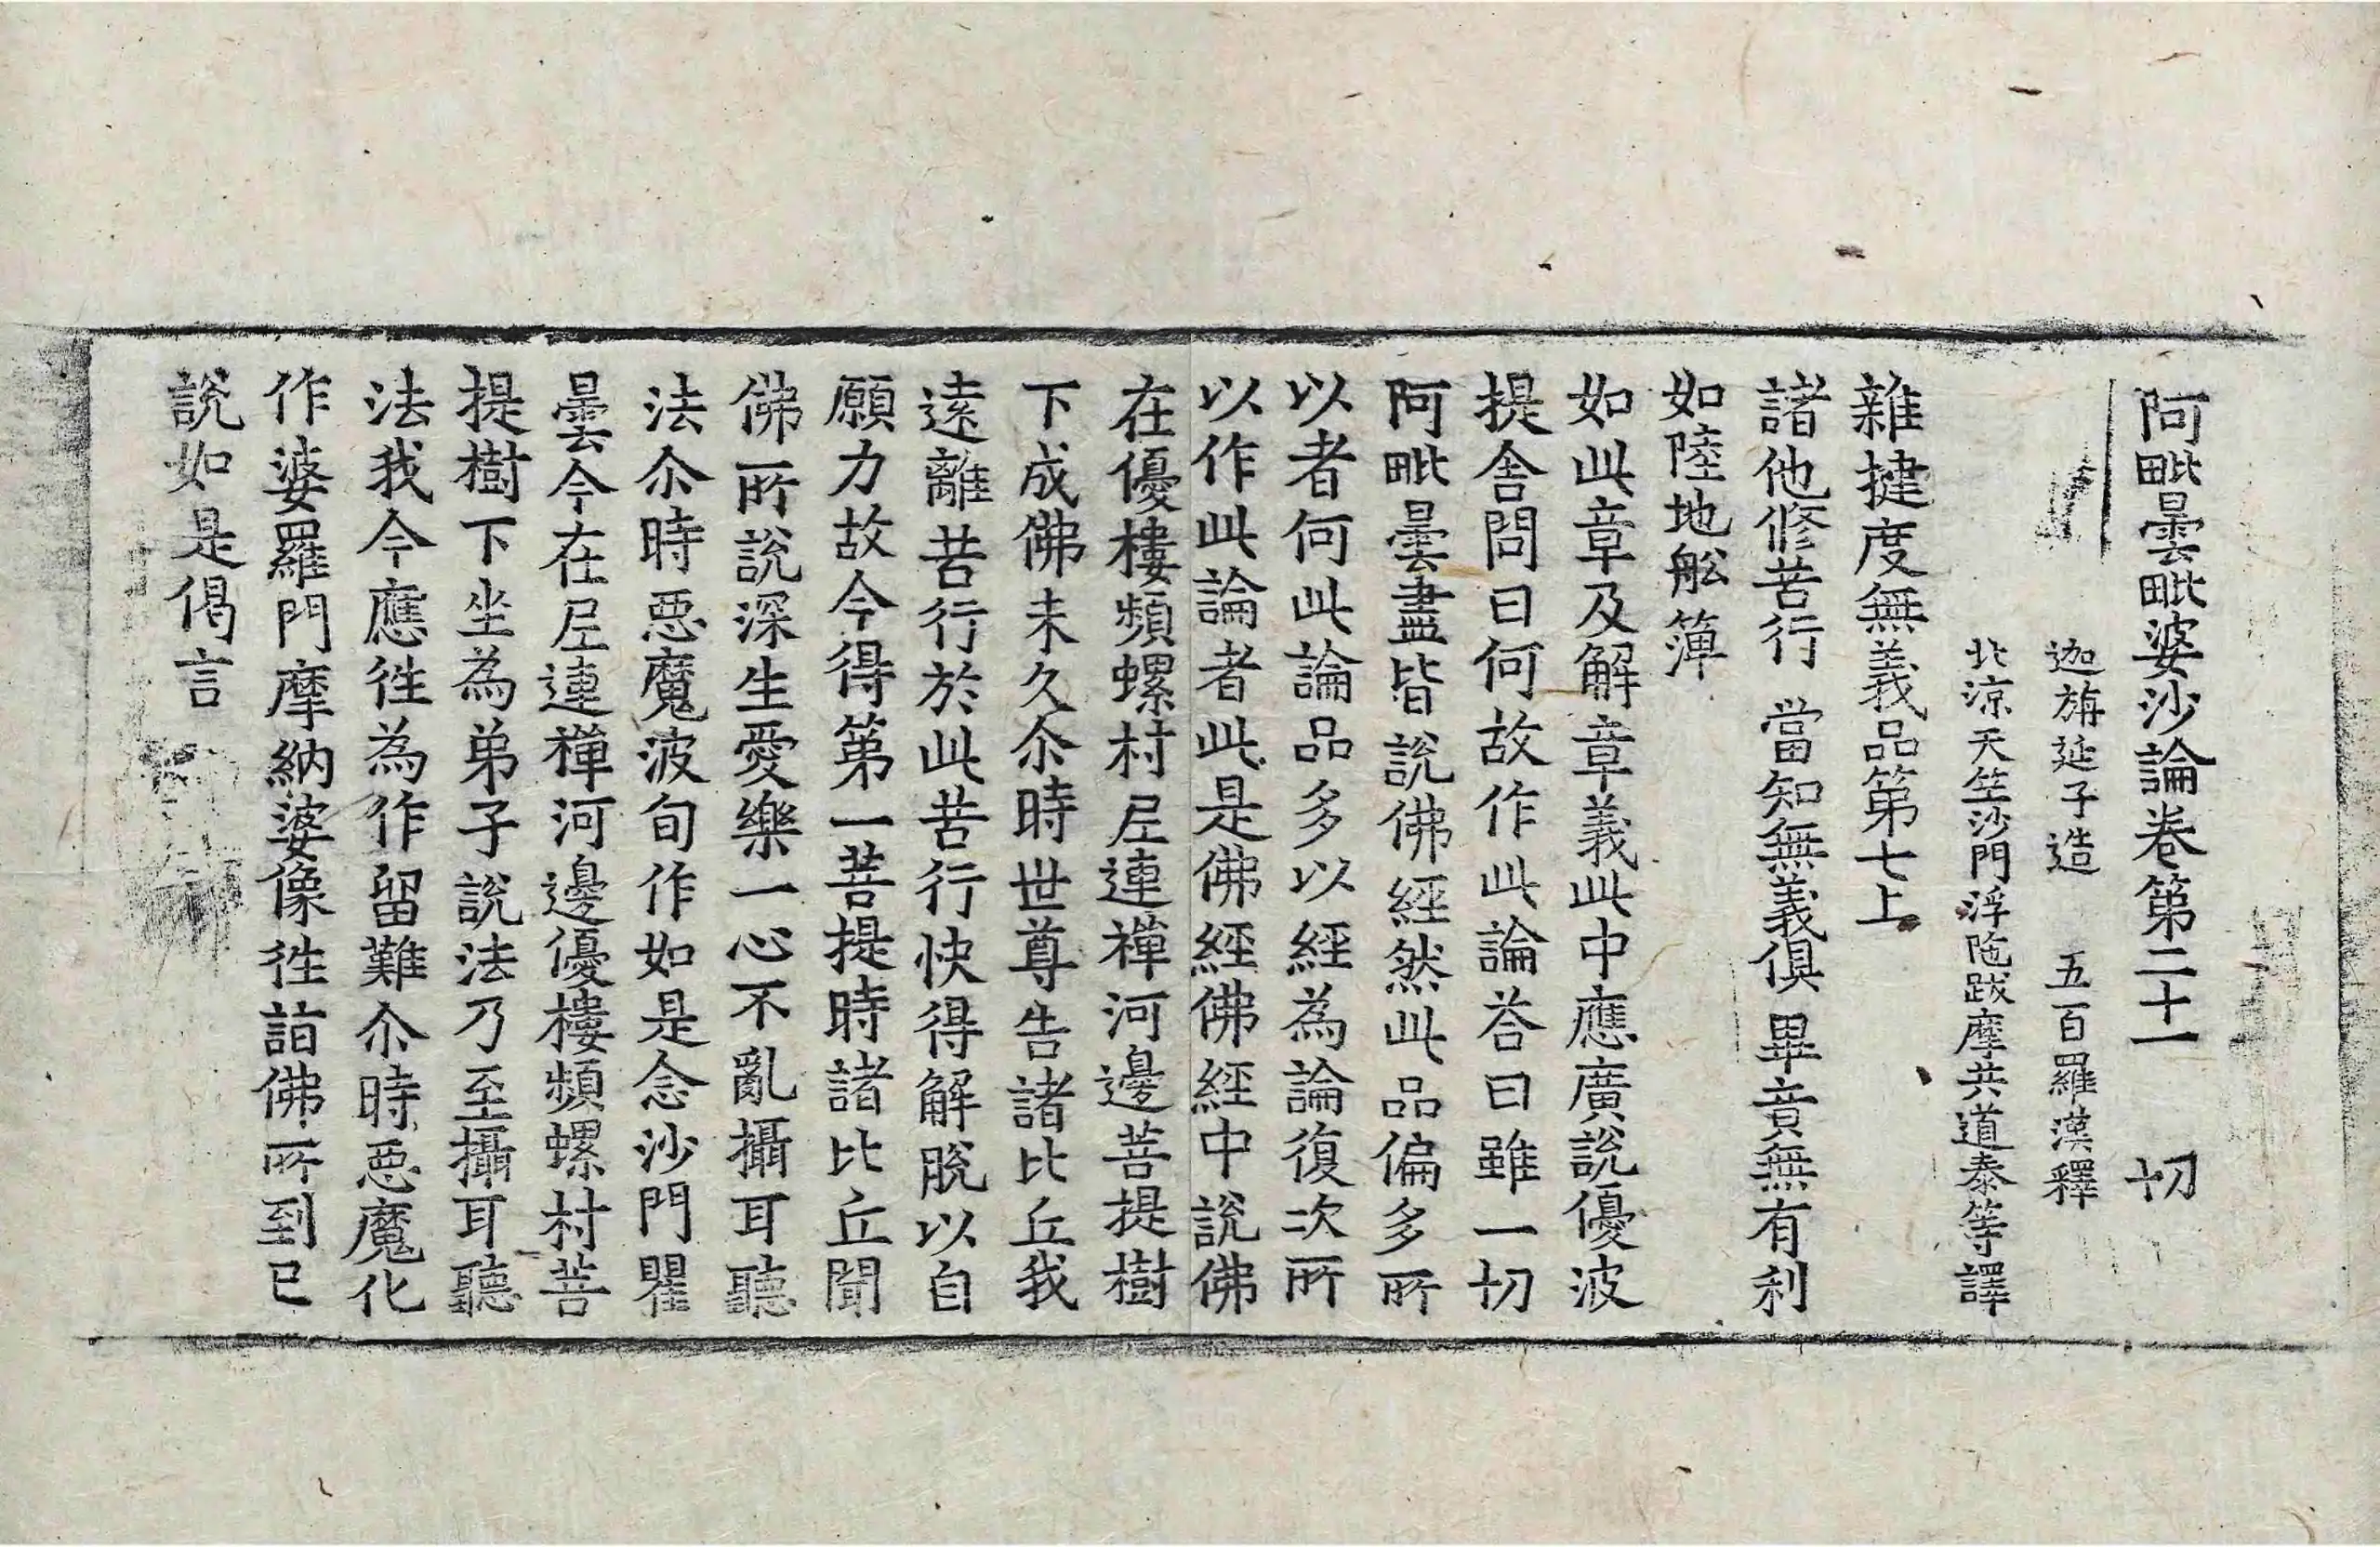 阿毗曇毗婆沙論卷第二十一 切
迦旃延子造 五百羅漢釋
北涼天竺沙門浮陁跋摩共道泰等譯
雜揵度無義品第七上
諸他修苦行 當知無義俱 畢竟無有利
如陸地舩簿
如此章及解章義此中應廣說優波
提舍問曰何故作此論荅曰雖一切
阿毗曇盡皆說佛經然此品偏多所
以者何此論品多以經為論復次所
以作此論者此是佛經佛經中說佛
在優樓頻螺村尼連禪河邊菩提樹
下成佛未久尒時世尊告諸比丘我
遠離苦行於此苦行快得解脫以自
願力故今得第一菩提時諸比丘聞
佛所說深生愛樂一心不亂攝耳聽
法尒時惡魔波旬作如是念沙門瞿
曇今在尼連禪河邊優樓頻螺村菩
提樹下坐為弟子說法乃至攝耳聽
法我今應徃為作留難尒時惡魔化
作婆羅門摩納婆像徃詣佛所到已
說如是偈言